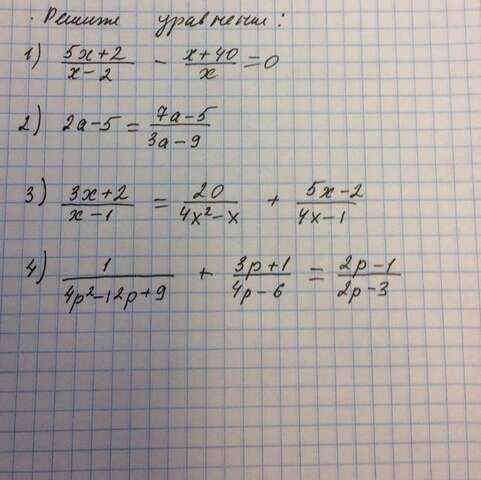 Решите уравнения:
1) (5x+2)/(x-2) - (x+40)/x = 0
2) 2a-5 = (7a-5)/(3a-9)
3) (3x+2)/(x-1) = 20/(4x²-x) + (5x-2)/(4x-1)
4) 1/(4p²-12p+9) + (3p+1)/(4p-6) = (2p-1)/(2p-3)